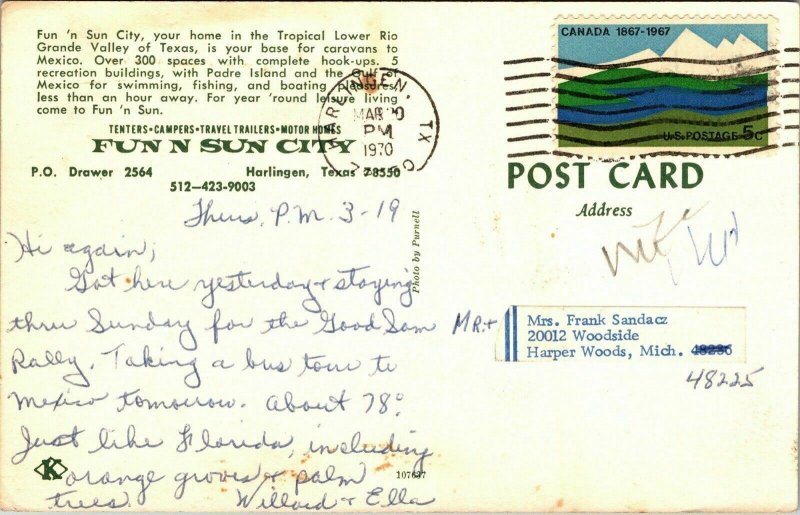 Fun 'n Sun City, your home in the Tropical Lower Rio
Grande Valley of Texas, is your base for caravans to
Mexico. Over 300 spaces with complete hook-ups. 5
recreation buildings, with Padre Island and the Gulf of
Mexico for swimming, fishing, and boating pleasures
less than an hour away. For year 'round leisure living
come to Fun 'n Sun.
TENTERS•CAMPERS•TRAVEL TRAILERS•MOTOR HOMES
FUN N SUN CITY
P.O. Drawer 2564 Harlingen, Texas 78550
512-423-9003
HARLINGEN, TX
MAR
PM
1970
CANADA 1867-1967
U.S. POSTAGE 5c
POST CARD
Address
Photo by Purnell
Thurs. P.M. 3-19
Hi again,
Got here yesterday & staying
thru Sunday for the Good Sam
Rally. Taking a bus tour to
Mexico tomorrow. About 78°
Just like Florida, including
orange groves & palm
trees. Willard & Ella
K
107637
Mr. +
Mrs. Frank Sandacz
20012 Woodside
Harper Woods, Mich. 48236
48225